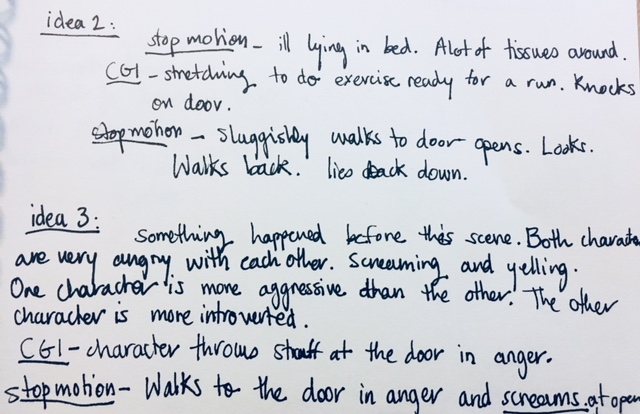 idea 2:
stop motion - ill lying in bed. Alot of tissues around.
CGI - stretching to do exercise ready for a run. Knocks
on door.
stop motion - Sluggishly walks to door opens. Looks.
Walks back. lies back down.
idea 3:
Something happened before this scene. Both characte
are very angry with each other. Screaming and yelling.
One character is more aggressive than the other. The other
character is more introverted.
CGI - character throws stuff at the door in anger.
stop motion - Walks to the door in anger and screams. at open